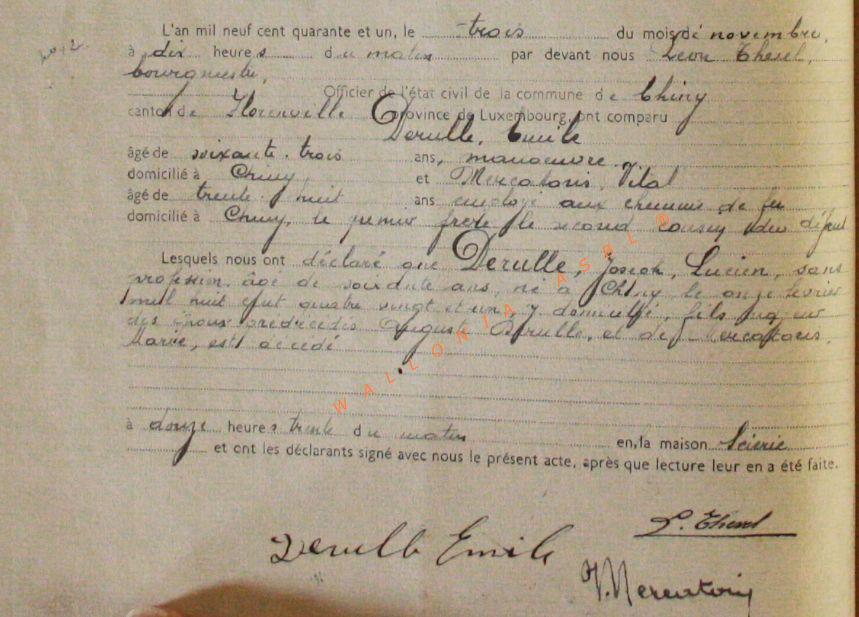 No 2.
L'an mil neuf cent quarante et un, le trois du mois de novembre,
à dix heures du matin par devant nous Léon Thesel,
bourgmestre,
Officier de l'état civil de la commune de Chiny
canton de Florenville Province de Luxembourg, ont comparu
Derulle, Emile
âgé de soixante-trois ans, manoeuvre
domicilié à Chiny et Mercatoris, Vital
âgé de trente-huit ans employé aux chemins de fer
domicilié à Chiny, le premier frère le second cousin du défunt
Lesquels nous ont déclaré que Derulle, Joseph, Lucien, sans
profession, âgé de soixante ans, né à Chiny le onze février
mil huit cent quatre vingt et un, y domicilié, fils majeur
des époux prédécédés Auguste Derulle, et de Mercatoris,
Marie, est décédé
à douze heures trente du matin en la maison Scierie
et ont les déclarants signé avec nous le présent acte, après que lecture leur en a été faite.
Derulle Emile
V. Mercatoris
WALLONIA ASBL ©